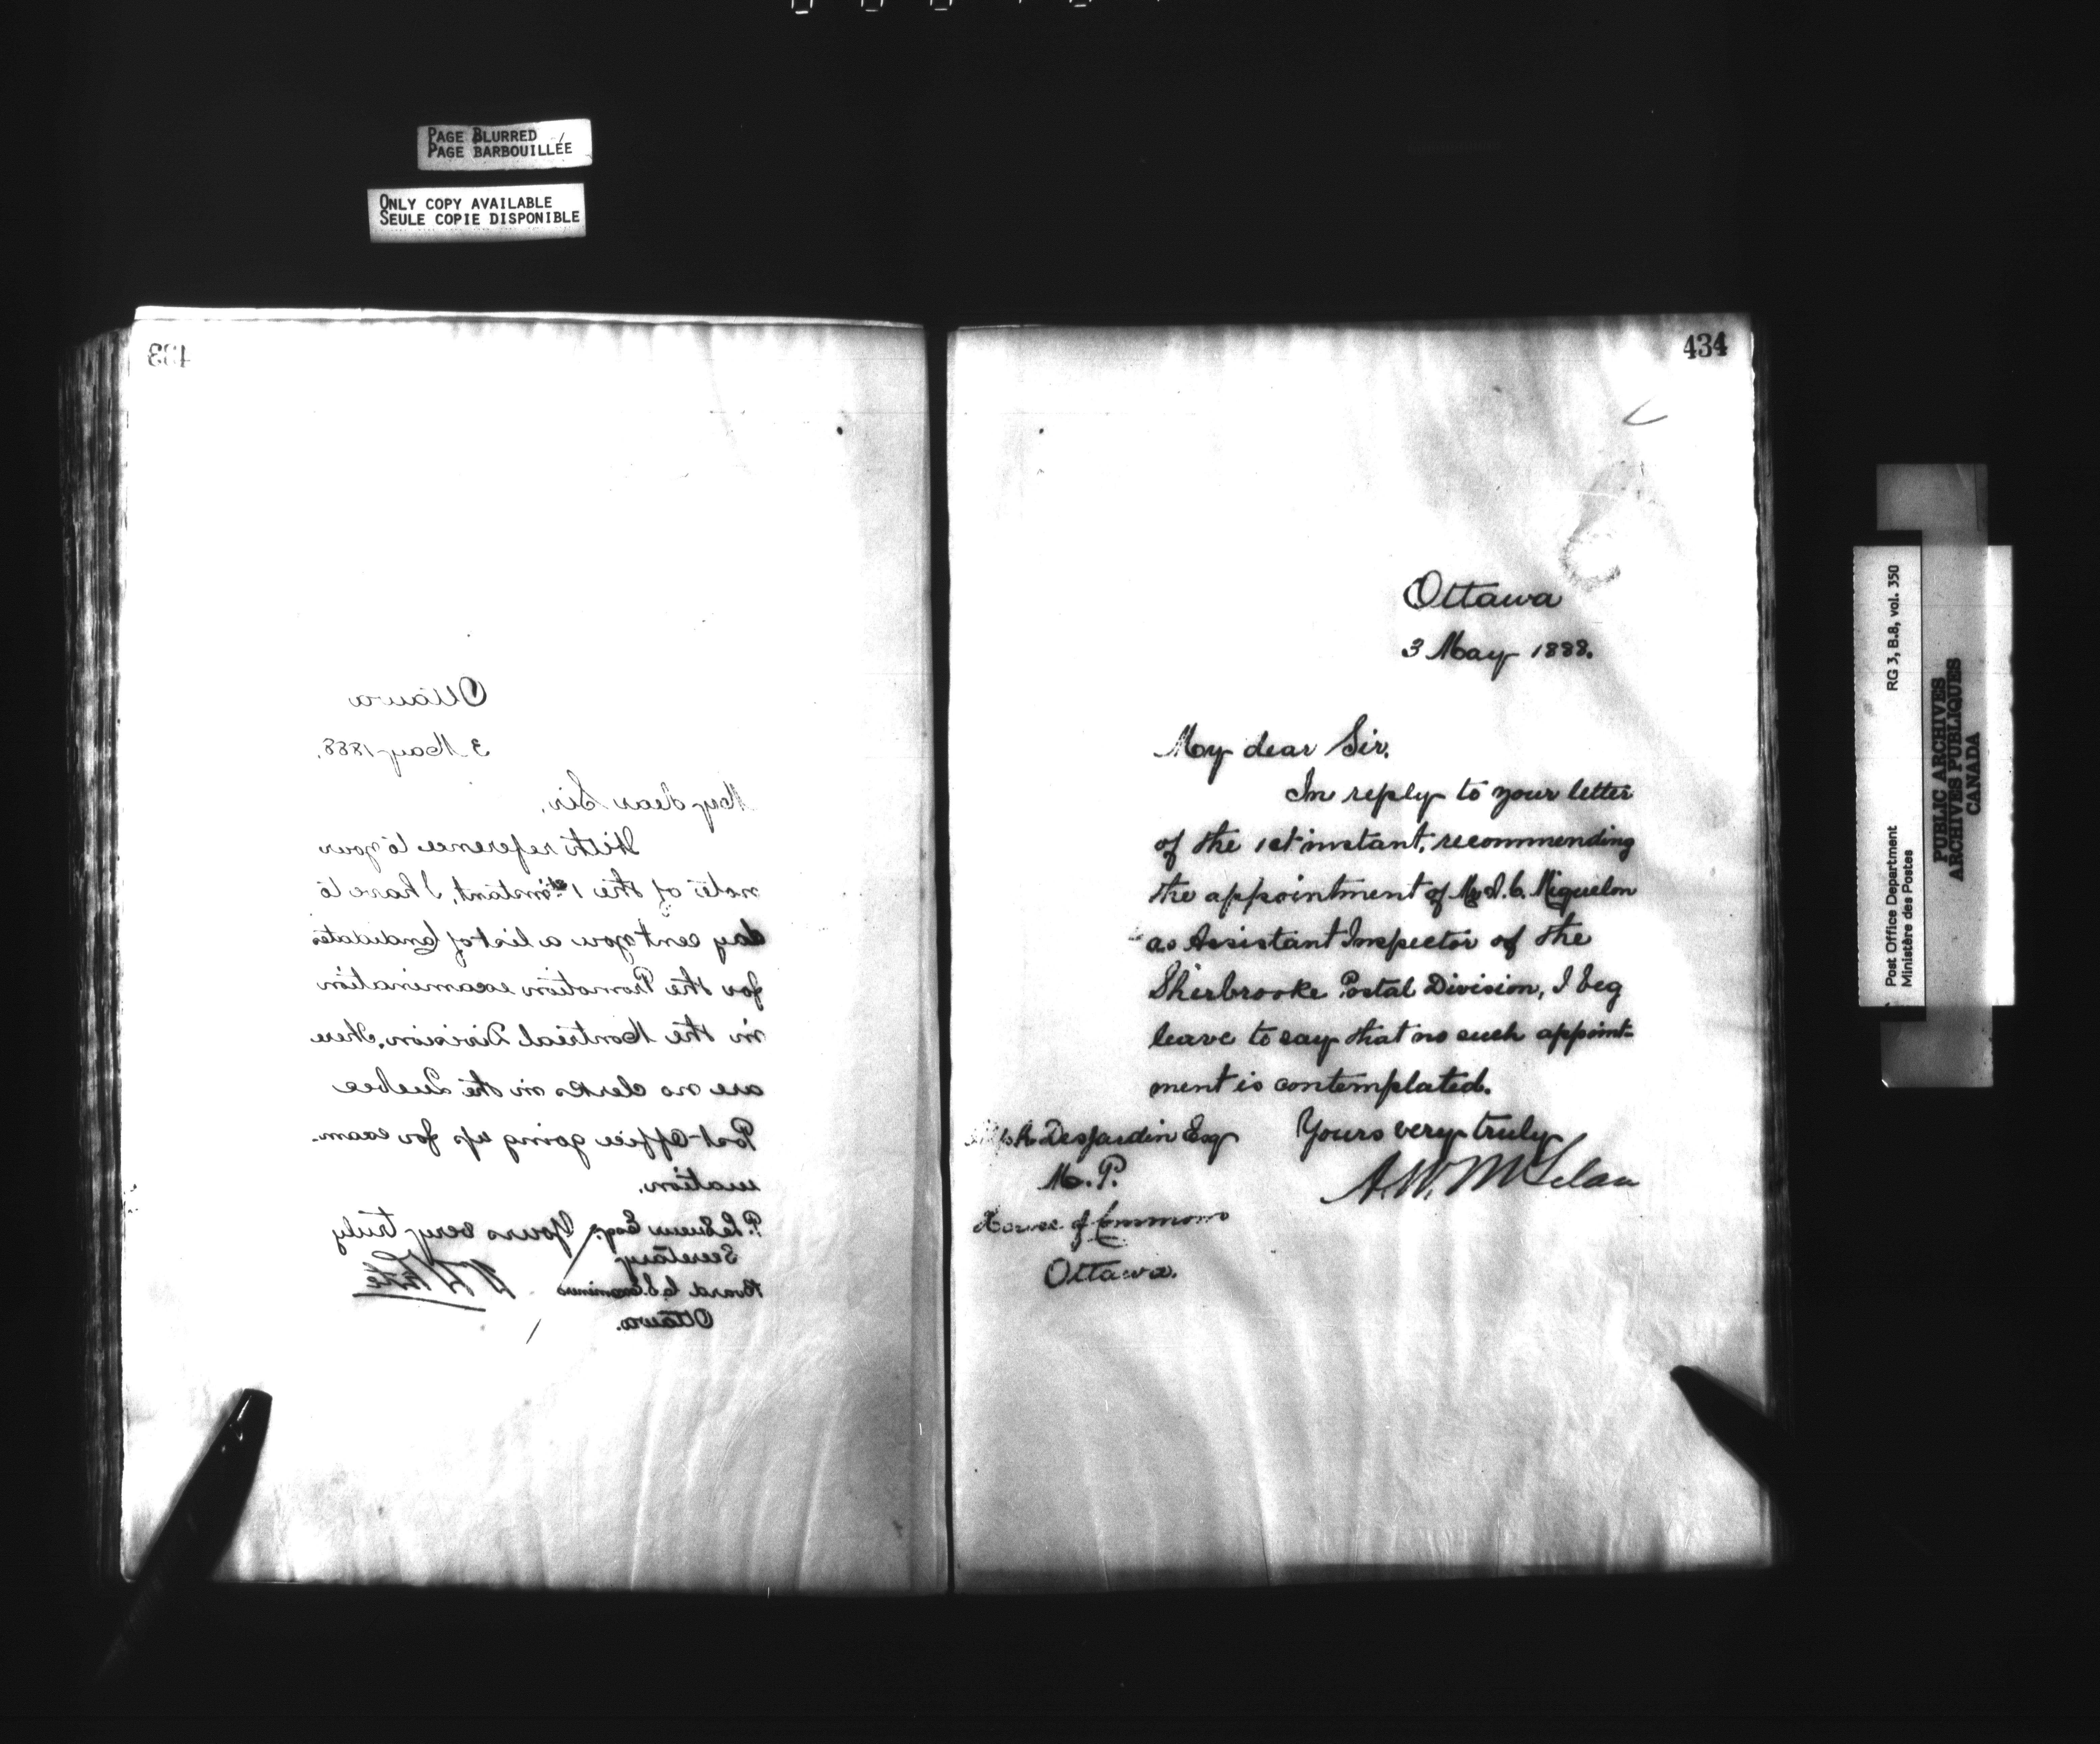 PAGE BLURRED
PAGE BARBOUILLÉE
ONLY COPY AVAILABLE
SEULE COPIE DISPONIBLE
433
Ottawa
3 May 1888.
My dear Sir,
With reference to your
note of the 1st instant, I have to
day sent you a list of Candidates
for the Promotion examination
in the Montreal Division. There
are no clerks in the Quebec
Post-Office going up for exam-
ination.
Yours very truly
P. LeSueur Esq.
Secretary
Board C.S. Examiners
Ottawa.
434
Ottawa
3 May 1888.
My dear Sir,
In reply to your letter
of the 1st instant, recommending
the appointment of Mr. Miquelon
as Assistant Inspector of the
Sherbrooke Postal Division, I beg
leave to say that no such appoint-
ment is contemplated.
Yours very truly
A. W. McLelan
Desjardin Esq
M. P.
House of Commons
Ottawa.
Post Office Department RG 3, B.8, vol. 350
Ministère des Postes
PUBLIC ARCHIVES
ARCHIVES PUBLIQUES
CANADA